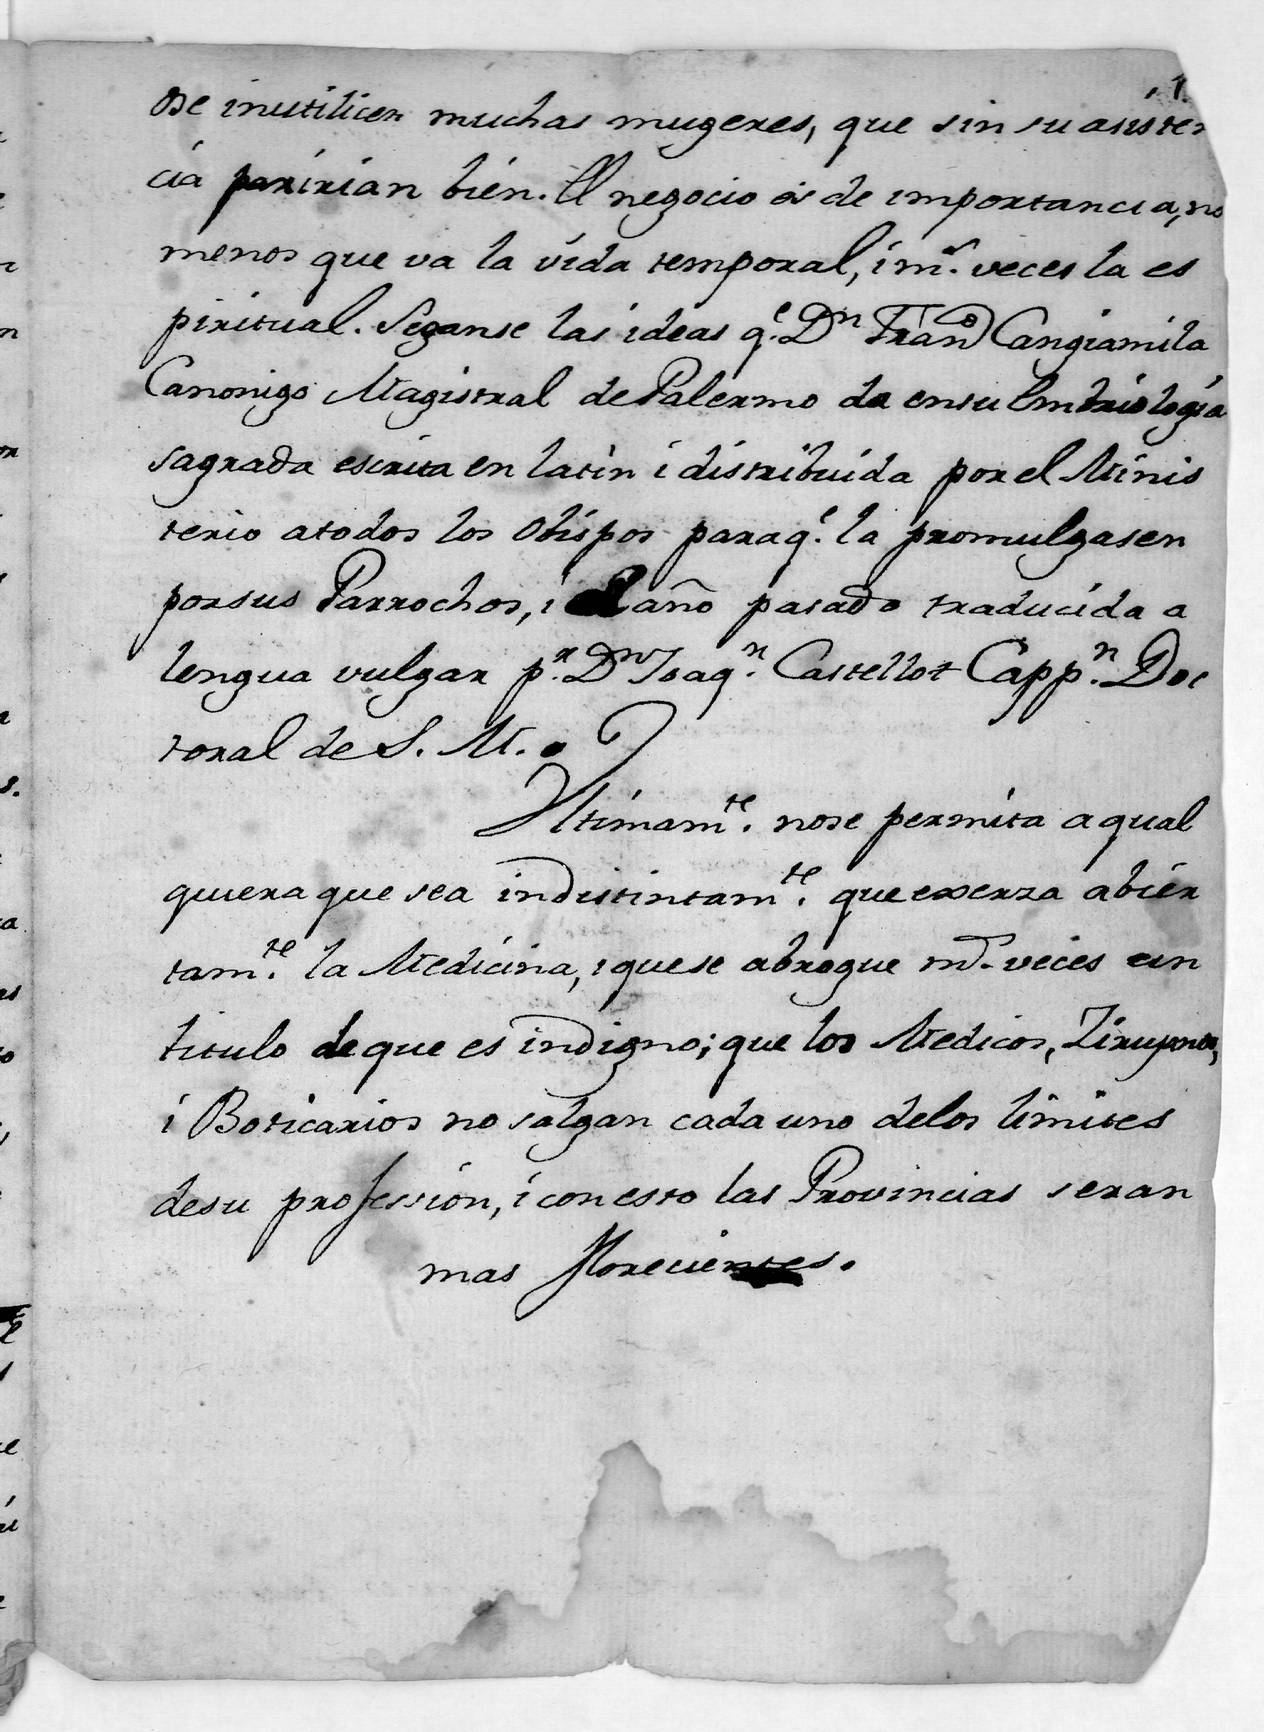 ose inutilicen muchas mugeres, que sin su asisten
cia paririan bien. El negocio es de importancia, no
menos que va la vida temporal, i m.s veces la es
piritual. Seganse las ideas q.e Dn Fran.co Cangiamila
Canonigo Magistral de Palermo da ensu Embriologia
sagrada escrita en latin i distribuida por el Minis
terio atodos los Obispos paraq.e la promulgasen
porsus Parrochos, i el año pasado traducida a
lengua vulgar p.r Dn Joaq.n Castellot Capp.n Doc
toral de S. M.
Ultimam.te nose permita a qual
quiera que sea indistintam.te que exerza abier
tam.te la Medicina, i quese abrogue m.s veces un
titulo de que es indigno; que los Medicos, Zirujanos,
i Boticarios no salgan cada uno delos limites
desu profession, i con esto las Provincias seran
mas florecientes.